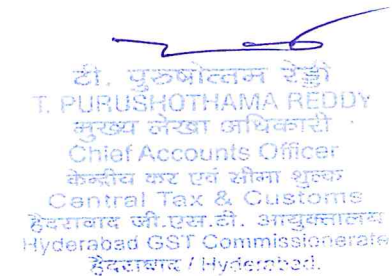 टी. पुरुषोत्तम रेड्डी
T. PURUSHOTHAMA REDDY
मुख्य लेखा अधिकारी
Chief Accounts Officer
केन्द्रीय कर एवं सीमा शुल्क
Central Tax & Customs
हैदराबाद जी.एस.टी. आयुक्तालय
Hyderabad GST Commissionerate
हैदराबाद / Hyderabad.